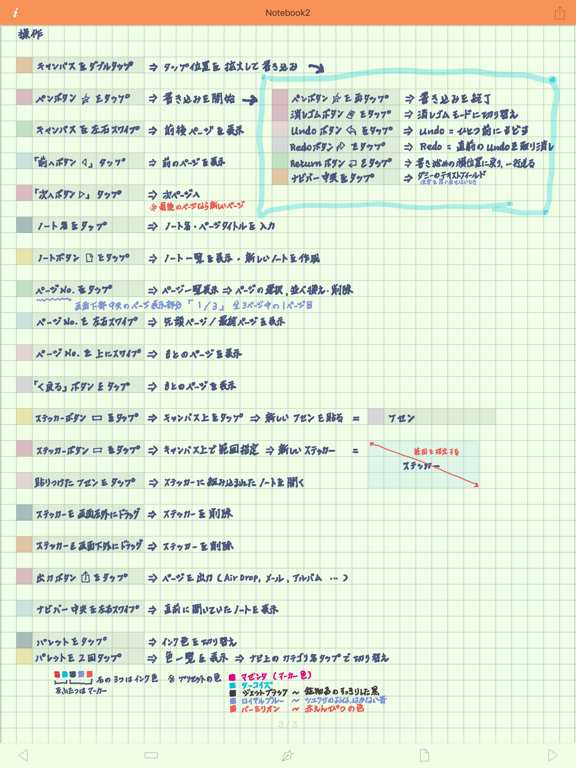 Notebook2
操作
キャンバスをダブルタップ ⇒ タップ位置を拡大して書き込み
ペンボタン をタップ ⇒ 書き込みを開始
ペンボタン を再タップ ⇒ 書き込みを終了
消しゴムボタン をタップ ⇒ 消しゴムモードに切り替え
Undoボタン をタップ ⇒ Undo = ひとつ前にもどす
Redoボタン をタップ ⇒ Redo = 直前のUndoを取り消し
Returnボタン をタップ ⇒ 書き始めの横位置に戻り、一行送る
ナビバー中央をタップ ⇒ ダミーのテキストフィールド
キャンバスを左右スワイプ ⇒ 前後ページを表示
「前へボタン ◁」タップ ⇒ 前のページを表示
「次へボタン ▷」タップ ⇒ 次ページへ
※最後のページなら新しいページ
ノート名をタップ ⇒ ノート名・ページタイトルを入力
ノートボタン をタップ ⇒ ノート一覧を表示・新しいノートを作成
ページNo.をタップ ⇒ ページ一覧表示 ⇒ ページの選択、並べ換え・削除
画面下部中央のページ表示部分「1/3」全3ページ中の1ページ目
ページNo.を左右スワイプ ⇒ 先頭ページ/最終ページを表示
ページNo.を上にスワイプ ⇒ もとのページを表示
「く戻る」ボタンをタップ ⇒ もとのページを表示
ステッカーボタン をタップ ⇒ キャンバス上をタップ ⇒ 新しいフセンを貼る = フセン
ステッカーボタン をタップ ⇒ キャンバス上で範囲指定 ⇒ 新しいステッカー =
範囲を指定する
ステッカー
貼りつけたフセンをタップ ⇒ ステッカーに組み込まれたノートを開く
ステッカーを画面左外にドラッグ ⇒ ステッカーを削除
ステッカーを画面下外にドラッグ ⇒ ステッカーを削除
出力ボタン をタップ ⇒ ページを出力(AirDrop、メール、アルバム …)
ナビバー中央を左右スワイプ ⇒ 直前に開いていたノートを表示
パレットをタップ ⇒ インク色を切り替え
パレットを2回タップ ⇒ 色一覧を表示 ⇒ ナビ上のカテゴリ名タップで切り替え
右の3つはインク色 ※プリセットの色
左ふたつはマーカー
マゼンタ(マーカー色)
ターコイズ
ジェットブラック ~ 鉱物名のすっきりした黒
ロイヤルブルー ~
バーミリオン ~ 赤えんぴつの色
3/3